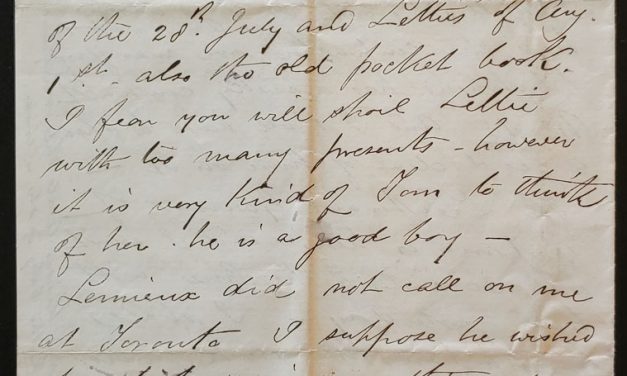 of the 28th. July and Letties of Aug.
1st. also the old pocket book.
I fear you will spoil Lettie
with too many presents - however
it is very kind of Tom to think
of her. he is a good boy —
Lemieux did not call on me
at Toronto I suppose he wished